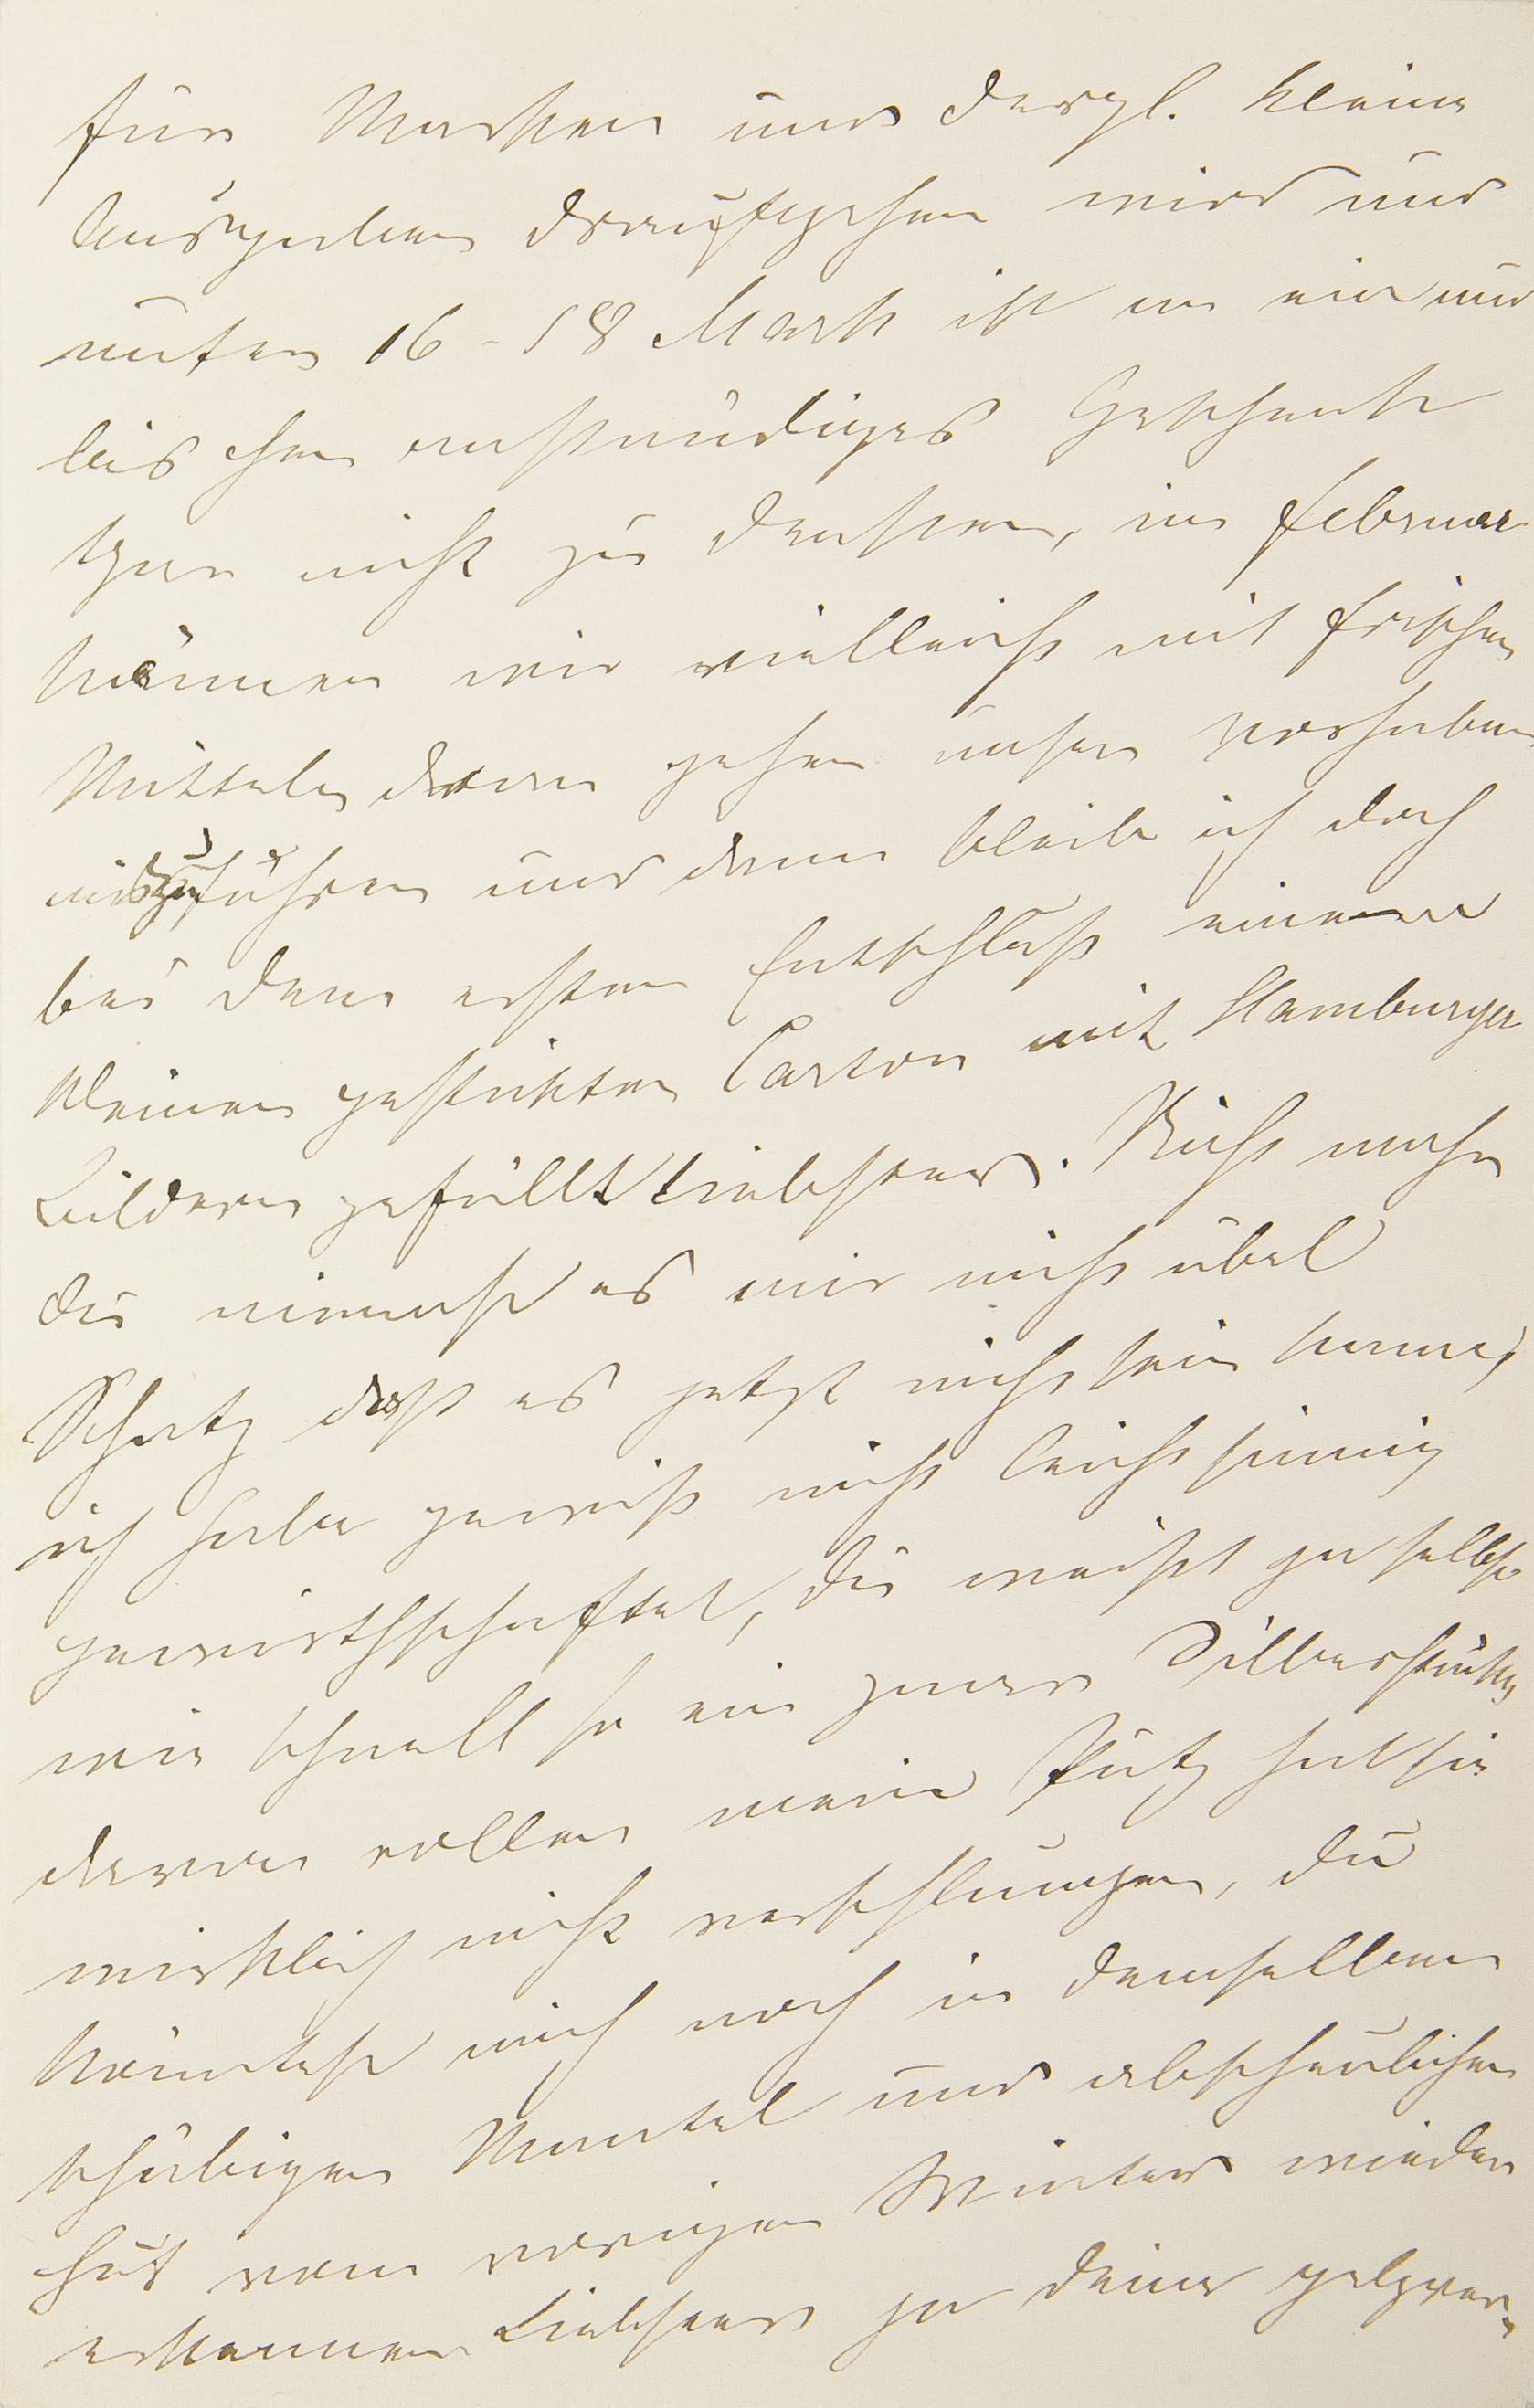 für Marken und dergl. kleine
Ausgaben draufgehen wird und
unter 16-18 Mark ist an ein nur
bischen anständiges Geschenk
gar nicht zu denken, im Februar
können wir vielleicht mit frischen
Mitteln daran gehen unser vorhaben
auszuführen und dann bleibe ich doch
bei dem ersten Entschluß einem
kleinen gestickten Carton mit Hamburger
Bildern gefüllt Liebster. Nicht wahr
du nimmst es mir nicht übel
Schatz daß es jetzt nicht sein kann,
ich habe gewiß nicht leichtsinnig
gewirthschaftet, du weißt ja selbst
wie schnell so ein paar Silberstücke
davon rollen mein Putz hat sie
wirklich nicht verschlungen, du
könntest mich noch in demselben
schäbigen Mantel und abscheulichen
Hut vom vorigen Winter wieder
erkennen Liebster ja deine